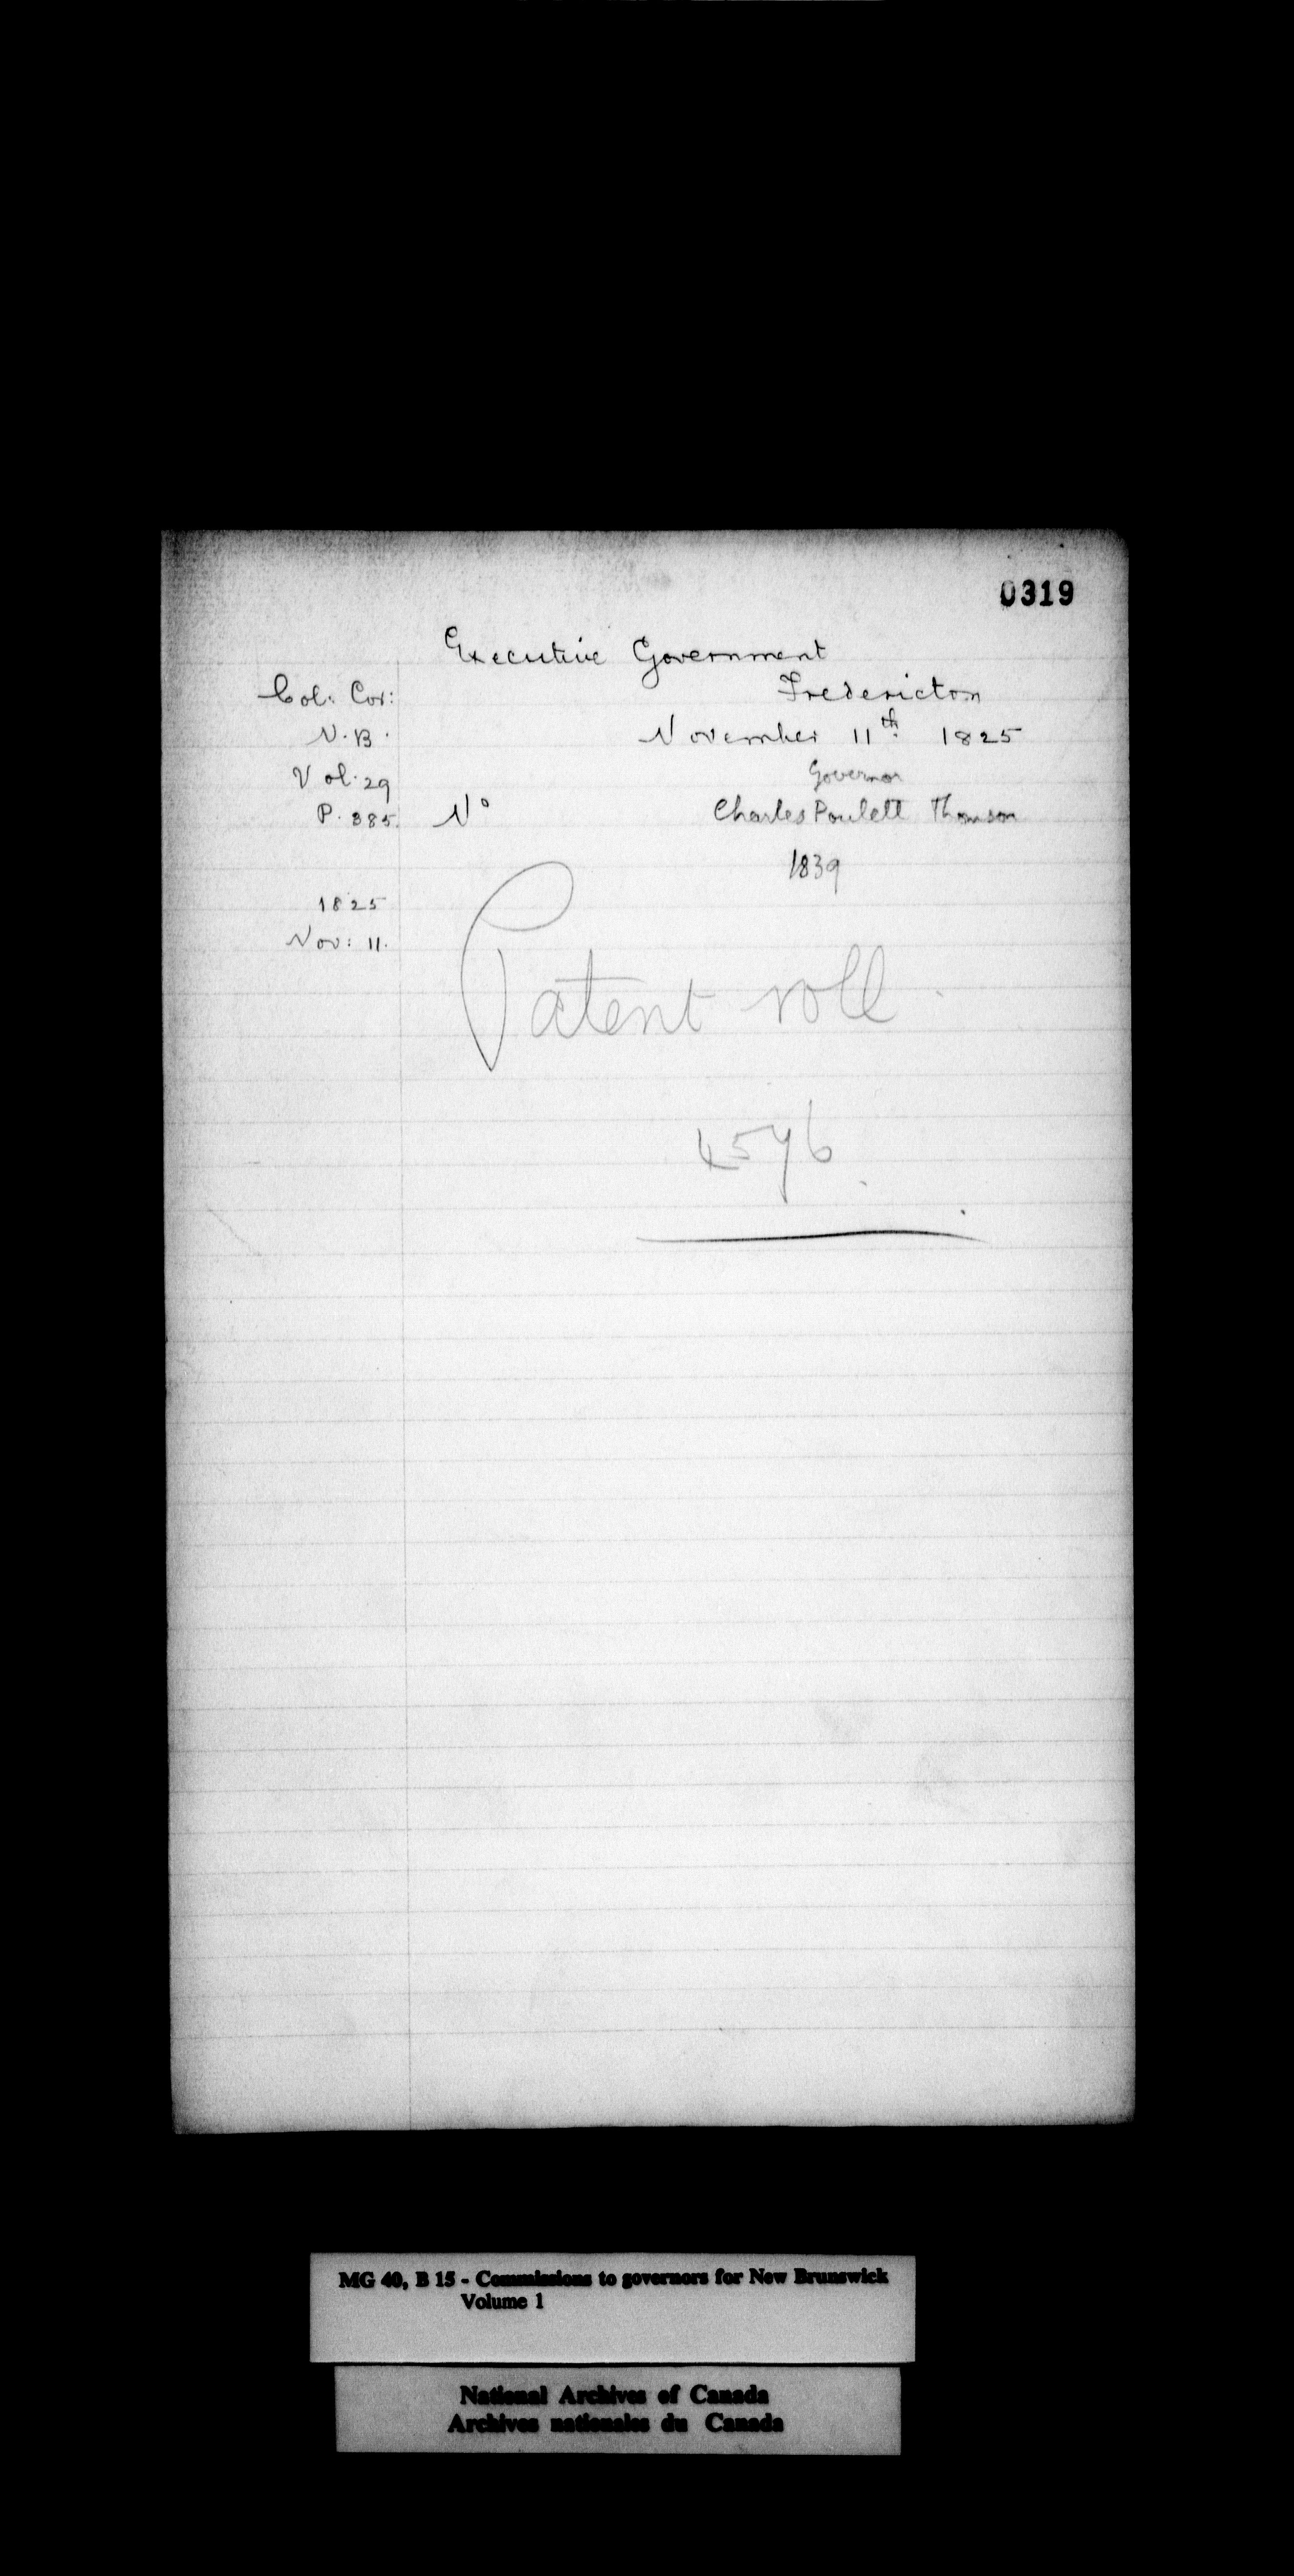 0319
Executive Government
Col: Cor:
Fredericton
N.B.
November 11th 1825
Vol. 29
Governor
P. 385.
No
Charles Poulett Thomson
1839
1825
Nov: 11.
Patent roll
4576
MG 40, B 15 - Commissions to governors for New Brunswick
Volume 1
National Archives of Canada
Archives nationales du Canada